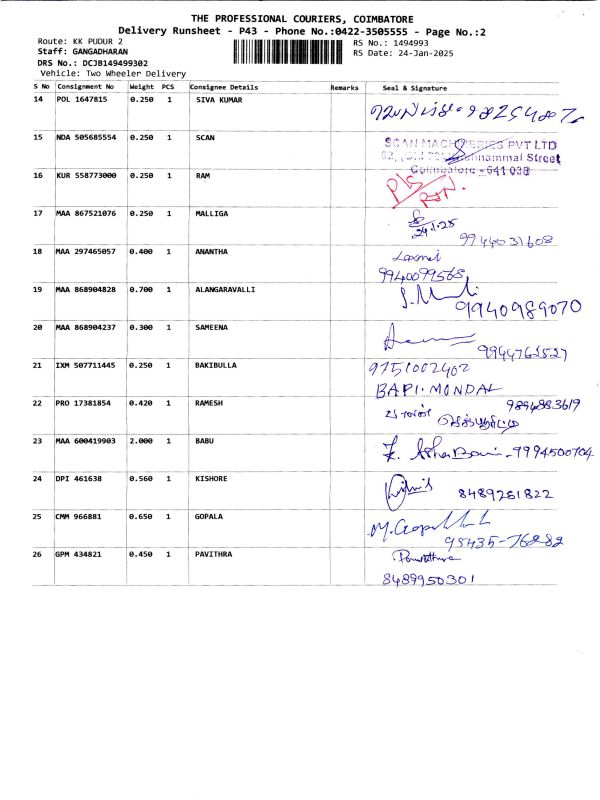 THE PROFESSIONAL COURIERS, COIMBATORE
Delivery Runsheet - P43 - Phone No.:0422-3505555 - Page No.:2
Route: KK PUDUR 2 RS No.: 1494993
Staff: GANGADHARAN RS Date: 24-Jan-2025
DRS No.: DCJB149499302
Vehicle: Two Wheeler Delivery
S No Consignment No Weight PCS Consignee Details Remarks Seal & Signature
14 POL 1647815 0.250 1 SIVA KUMAR
15 NDA 505685554 0.250 1 SCAN SCAN MACHINERIES PVT LTD
Street
Coimbatore - 641 038
16 KUR 558773000 0.250 1 RAM
17 MAA 867521076 0.250 1 MALLIGA
24.1.25
9944031608
18 MAA 297465057 0.400 1 ANANTHA Laxmi
9940099568
19 MAA 868904828 0.700 1 ALANGARAVALLI
9940989070
20 MAA 868904237 0.300 1 SAMEENA
9944762527
21 IXM 507711445 0.250 1 BAKIBULLA 9751002402
BAPI. MONDAL
22 PRO 17381854 0.420 1 RAMESH 9894883619
23 MAA 600419903 2.000 1 BABU - 9994500704
24 DPI 461638 0.560 1 KISHORE
8489261822
25 CMM 966881 0.650 1 GOPALA M. Gopal
95435-76282
26 GPM 434821 0.450 1 PAVITHRA
8489950301